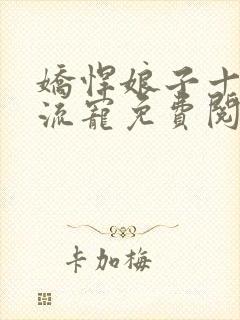 嬌悍娘子十
流寵免費閱
卡加梅